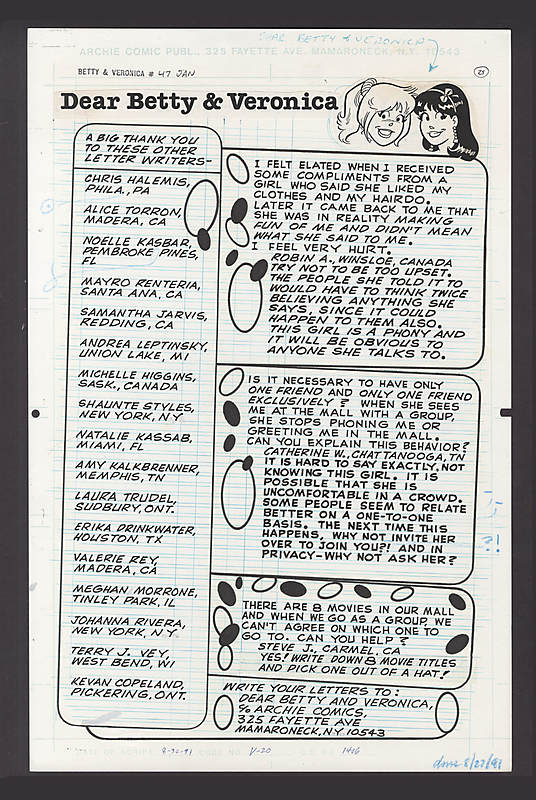 DEAR BETTY & VERONICA
ARCHIE COMIC PUBL., 325 FAYETTE AVE. MAMARONECK, N.Y. 10543
BETTY & VERONICA # 47 JAN
Dear Betty & Veronica
A BIG THANK YOU
TO THESE OTHER
LETTER WRITERS-
CHRIS HALEMIS,
PHILA., PA
ALICE TORRON,
MADERA, CA
NOELLE KASBAR,
PEMBROKE PINES,
FL
MAYRO RENTERIA,
SANTA ANA, CA
SAMANTHA JARVIS,
REDDING, CA
ANDREA LEPTINSKY,
UNION LAKE, MI
MICHELLE HIGGINS,
SASK., CANADA
SHAUNTE STYLES,
NEW YORK, N.Y.
NATALIE KASSAB,
MIAMI, FL
AMY KALKBRENNER,
MEMPHIS, TN
LAURA TRUDEL,
SUDBURY, ONT.
ERIKA DRINKWATER,
HOUSTON, TX
VALERIE REY,
MADERA, CA
MEGHAN MORRONE,
TINLEY PARK, IL
JOHANNA RIVERA,
NEW YORK, N.Y.
TERRY J. VEY,
WEST BEND, WI
KEVAN COPELAND,
PICKERING, ONT.
I FELT ELATED WHEN I RECEIVED
SOME COMPLIMENTS FROM A
GIRL WHO SAID SHE LIKED MY
CLOTHES AND MY HAIRDO.
LATER IT CAME BACK TO ME THAT
SHE WAS IN REALITY MAKING
FUN OF ME AND DIDN'T MEAN
WHAT SHE SAID TO ME.
I FEEL VERY HURT.
ROBIN A., WINSLOE, CANADA
TRY NOT TO BE TOO UPSET.
THE PEOPLE SHE TOLD IT TO
WOULD HAVE TO THINK TWICE
BELIEVING ANYTHING SHE
SAYS, SINCE IT COULD
HAPPEN TO THEM ALSO.
THIS GIRL IS A PHONY AND
IT WILL BE OBVIOUS TO
ANYONE SHE TALKS TO.
IS IT NECESSARY TO HAVE ONLY
ONE FRIEND AND ONLY ONE FRIEND
EXCLUSIVELY? WHEN SHE SEES
ME AT THE MALL WITH A GROUP,
SHE STOPS PHONING ME OR
GREETING ME IN THE MALL.
CAN YOU EXPLAIN THIS BEHAVIOR?
CATHERINE W., CHATTANOOGA, TN
IT IS HARD TO SAY EXACTLY, NOT
KNOWING THIS GIRL. IT IS
POSSIBLE THAT SHE IS
UNCOMFORTABLE IN A CROWD.
SOME PEOPLE SEEM TO RELATE
BETTER ON A ONE-TO-ONE
BASIS. THE NEXT TIME THIS
HAPPENS, WHY NOT INVITE HER
OVER TO JOIN YOU?! AND IN
PRIVACY-WHY NOT ASK HER?
?!
THERE ARE 8 MOVIES IN OUR MALL
AND WHEN WE GO AS A GROUP, WE
CAN'T AGREE ON WHICH ONE TO
GO TO. CAN YOU HELP?
STEVE J., CARMEL, CA
YES! WRITE DOWN 8 MOVIE TITLES
AND PICK ONE OUT OF A HAT!
WRITE YOUR LETTERS TO:
DEAR BETTY AND VERONICA,
% ARCHIE COMICS,
325 FAYETTE AVE
MAMARONECK, N.Y. 10543
V-20
done 8/27/91